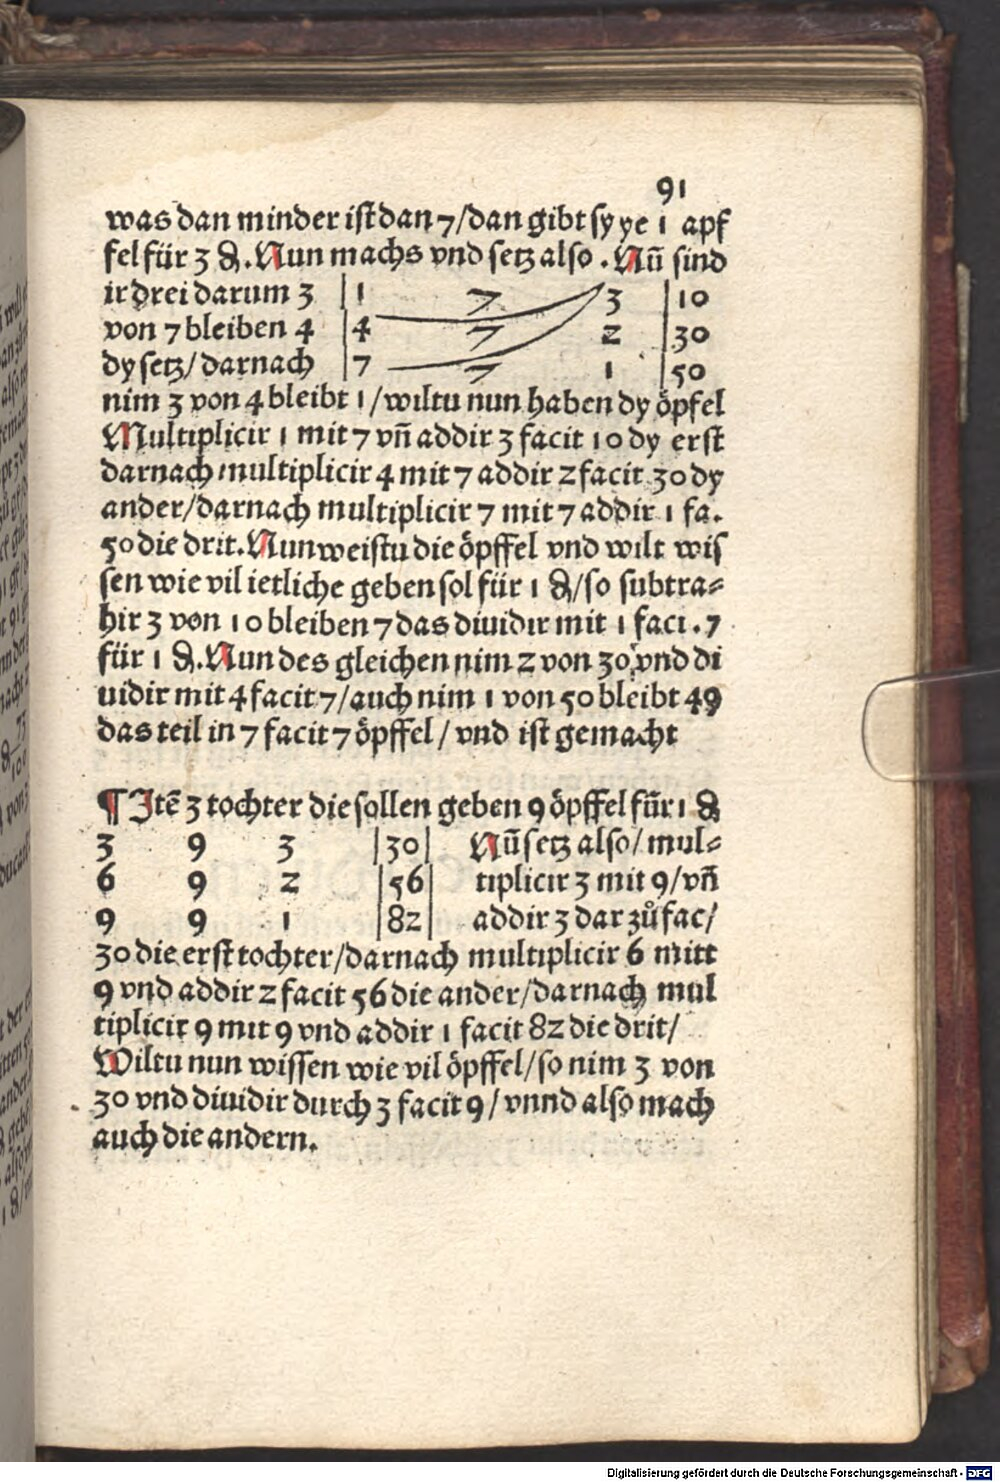 91
was dan minder ist dan 7/dan gibt sy ye 1 apf
fel für 3 ₰. Nun machs vnd setz also. Nu̅ sind
ir drei darum 3 | 1 7 3 | 10
von 7 bleiben 4 | 4 7 2 | 30
dy setz/darnach | 7 7 1 | 50
nim 3 von 4 bleibt 1/wiltu nun haben dy öpfel
Multiplicir 1 mit 7 vn̅ addir 3 facit 10 dy erst
darnach multiplicir 4 mit 7 addir 2 facit 30 dy
ander/darnach multiplicir 7 mit 7 addir 1 fa.
50 die drit. Nun weistu die öpffel vnd wilt wis
sen wie vil ietliche geben sol für 1 ₰/so subtra⸗
hir 3 von 10 bleiben 7 das diuidir mit 1 faci. 7
für 1 ₰. Nun des gleichen nim 2 von 30 vnd di
uidir mit 4 facit 7/auch nim 1 von 50 bleibt 49
das teil in 7 facit 7 öpffel/vnd ist gemacht
¶ Ite̅ 3 tochter die sollen geben 9 öpffel für 1 ₰
3 9 3 |30| Nu̅ setz also/mul⸗
6 9 2 |56| tiplicir 3 mit 9/vn̅
9 9 1 |82| addir 3 dar zů fac/
30 die erst tochter/darnach multiplicir 6 mitt
9 vnd addir 2 facit 56 die ander/darnach mul
tiplicir 9 mit 9 vnd addir 1 facit 82 die drit/
Wiltu nun wissen wie vil öpffel/so nim 3 von
30 vnd diuidir durch 3 facit 9/vnnd also mach
auch die andern.
Digitalisierung gefördert durch die Deutsche Forschungsgemeinschaft - DFG